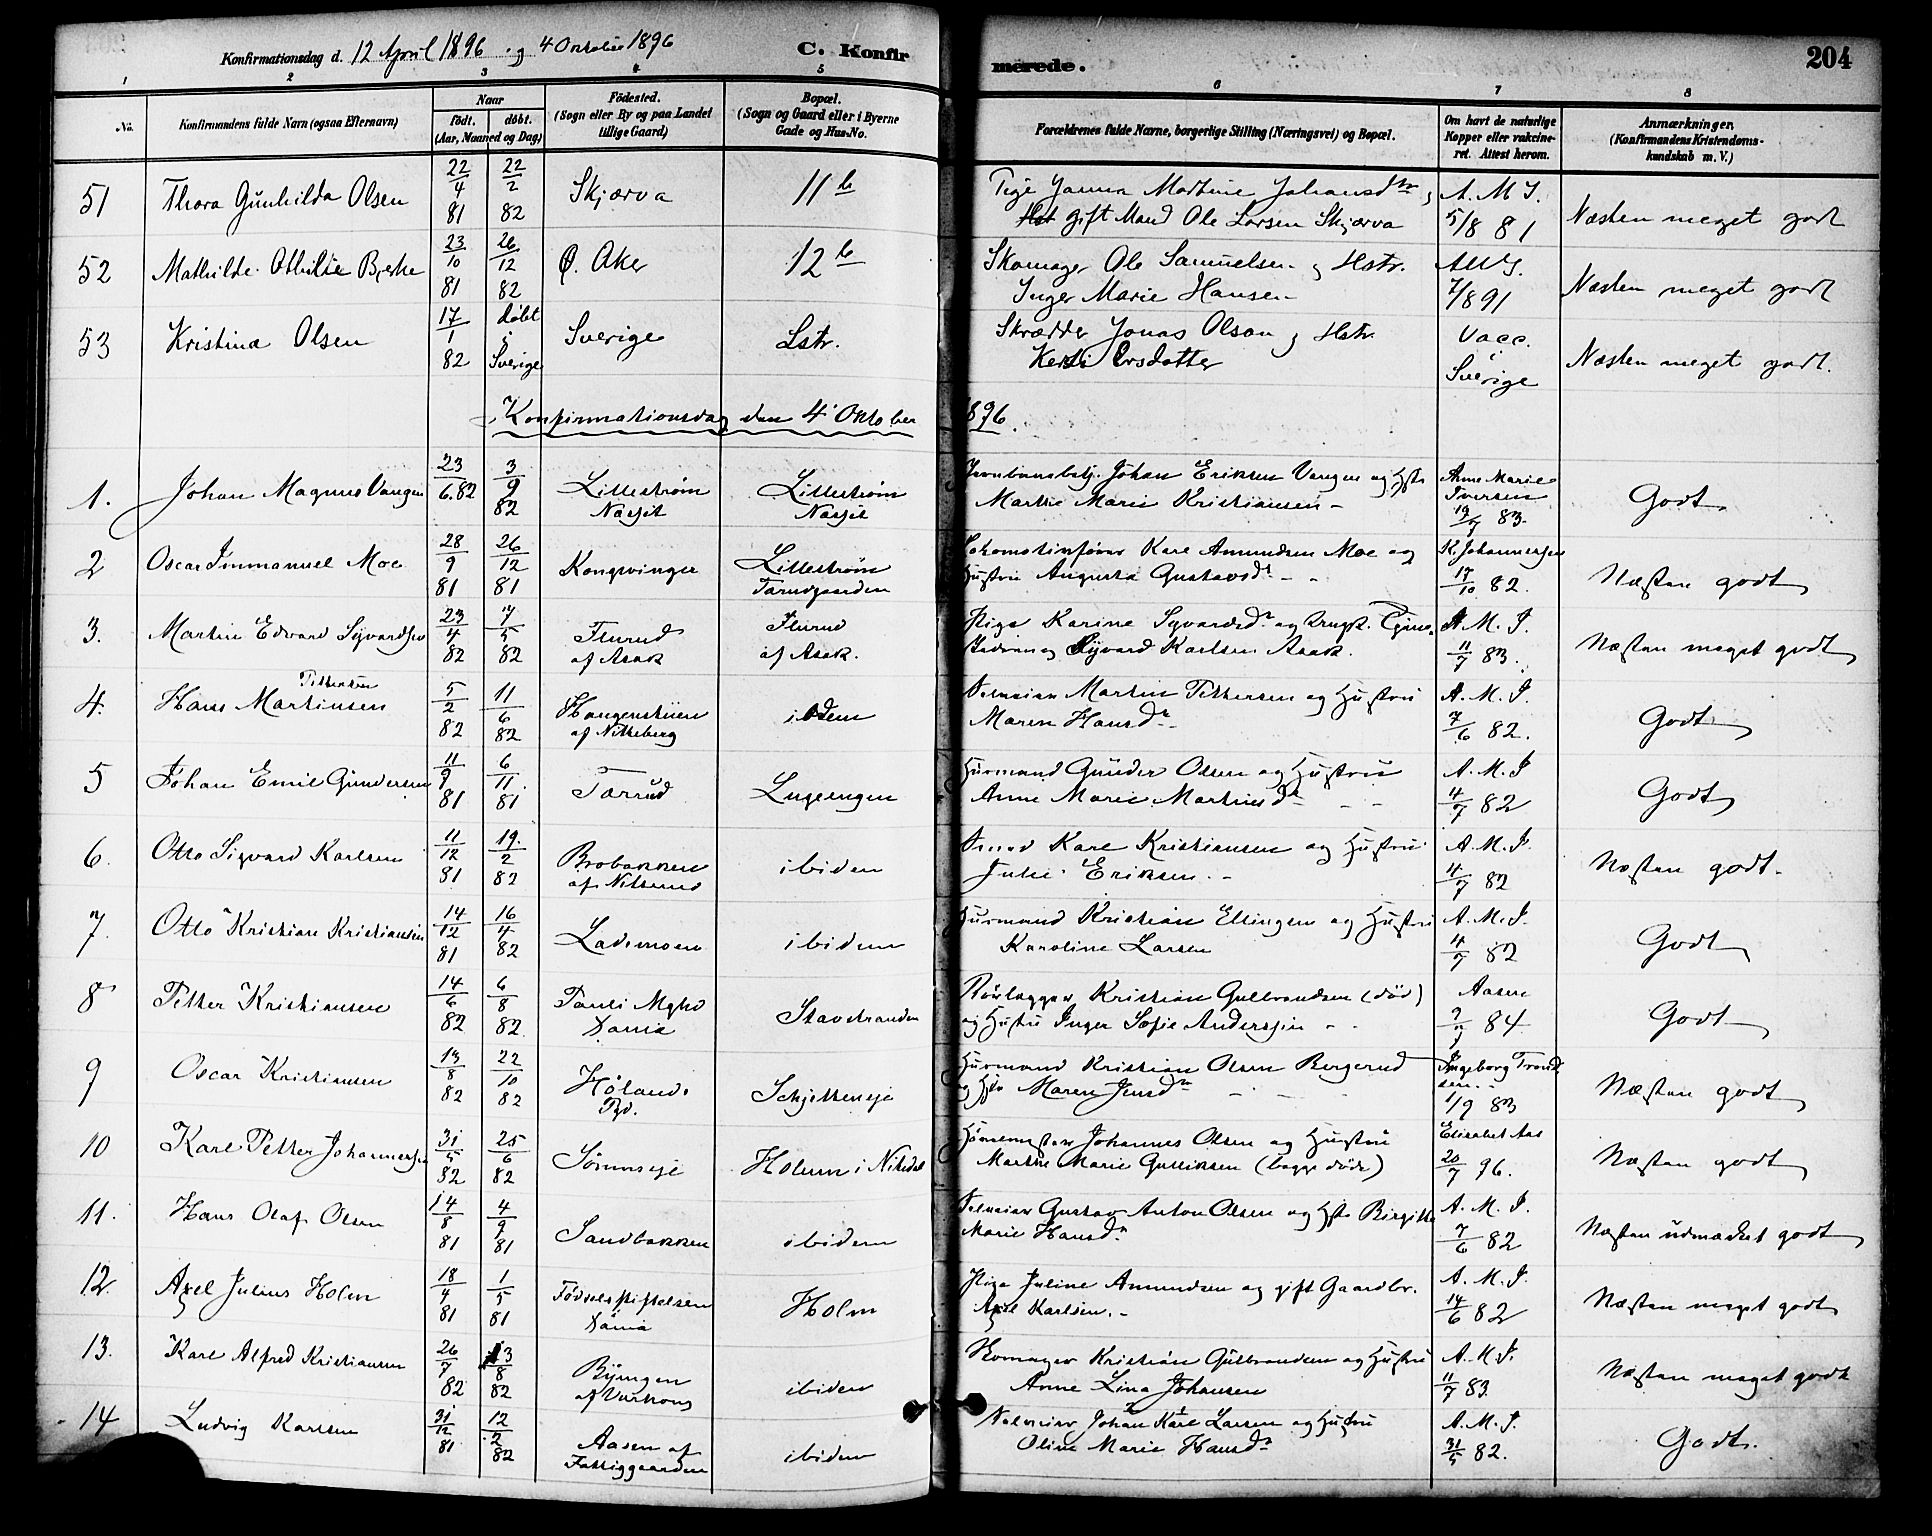 Konfirmationsdag d. 12 April 1896 og 4 Oktober 1896
C. Konfir
merede.
204
1 2 3 4 5 6 7 8
No.
Konfirmandens fulde Navn (ogsaa Efternavn)
Naar
født. døbt.
(Aar, Maaned og Dag)
Födested.
(Sogn eller By og paa Landet
tillige Gaard)
Bopæl.
(Sogn og Gaard eller i Byerne
Gade og Hus-No.
Forældrenes fulde Navne, borgerlige Stilling (Næringsvei) og Bopæl.
Om havt de naturlige
Kopper eller vakcine-
ret. Attest herom.
Anmærkninger.
(Konfirmandens Kristendoms-
kundskab m. V.)
51 Thora Gunhilda Olsen 22/4 81 22/2 82 Skjærva 11 b
Pige Janna Martine Johansdtr og
gift Mand Ole Larsen Skjærva
A. M. I. 5/8 81 Næsten meget godt
52 Mathilde Othilie 23/10 81 26/12 82 Ø. Aker 12 b
Skomager Ole Samuelsen og Hstr.
Inger Marie Hansen
7/8 91 Næsten meget godt
53 Kristine Olsen 17/1 82 døbt i Sverige Sverige Lstr.
Skrædder Jonas Olson og Hstr.
Kersti
Vacc. i Sverige Næsten meget godt.
Konfirmationsdag den 4 Oktober 1896.
1. Johan Magnus Vangen 23/6.82 3/9 82 Lillestrøm Lillestrøm
Johan Eriksen Vangen og Hstr
Marthe Marie Kristiansen
Anne Marie
Iversen
19/7 83. Godt
2 Oscar Immanuel Moe 28/9 81 26/12 81 Kongsvinger Lillestrøm
Lokomotivfører Karl Amundsen Moe og
Hustru Augusta Gustavsdt
K. Johannessen
17/10 82. Næsten godt
3. Martin Edvard Syvardsen 23/4 82 7/5 82 Flurud
af Asak
Flurud
af Asak.
Pige Karine Syvardsdr og
Syvard Karlsen Asak.
A. M. I.
11/7 83. Næsten meget godt
4. Hans Martinsen
Pettersen
5/2 82 11/6 82
af Nitteberg
ibidem
Martin Pettersen og Hustru
Maren Hansdr
A. M. I.
7/6 82. Godt
5 Johan Emil Gundersen 11/9 81 6/11 81 Tærrud
Husmand Gunder Olsen og Hustru
Anne Marie Martinsdr
A. M. I
4/7 82 Godt
6. Otto Sigvard Karlsen 11/12 81 19/2 82 Brobakken
af Nitsund
ibidem
Smed Karl Kristiansen og Hustru
Julie Eriksen
A. M. I.
4/7 82 Næsten godt.
7. Otto Kristian Kristiansen 14/12 81 16/4 82 Lademoen ibidem
Husmand Kristian Ellingsen og Hustru
Karoline Larsen
A. M. I.
4/7 82 Godt
8 Petter Kristiansen 14/6 82 6/8 82
Rørlægger Kristian Gulbrandsen (død)
og Hustru Inger Sofie Anderssen
Aasen
84. Godt
9 Oscar Kristiansen 13/8 82 22/10 82 Høland
Husmand Kristian Olsen Bergerud
og Hstr Maren Jensdr
Ingeborg Trond
sen.
1/9 83 Næsten godt
10 Karl Petter Johannessen 31/5 82 25/6 82 Holum i Nitedal
Johannes Olsen og Hustru
Marthe Marie Gulliksen (begge døde)
Elisabet Aas
20/7 96. Næsten godt
11. Hans Olaf Olsen 14/8 81 4/9 81 Sandbakken ibidem
Gustav Anton Olsen og Hstr Birgitte
Marie Hansdr
A. M. I.
7/6 82 Næsten udmærket godt
12. Axel Julius Holm 18/4 81 1/5 81 Fødselsstiftelsen Holm
Pige Juline Amundsen og gift Gaardbr.
Axel Karlsen.
A. M. I.
14/6 82 Næsten meget godt
13. Karl Alfred Kristiansen 26/7 82 13/8 82 ibidem
Skomager Kristian Gulbrandsen og Hustru
Anne Lina Johansen
A. M. I.
11/7 83 Næsten meget godt
14 Ludvig Karlsen 31/12 81 12/2 82 Aasen af
Fattiggaarden
ibidem
Johan Karl Larsen og Hustru
Oline Marie Hansdr
A. M. I.
31/5 82. Godt.